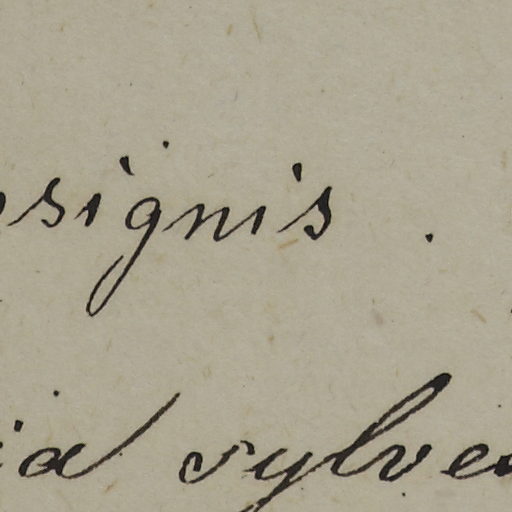 signis .
ia sylve